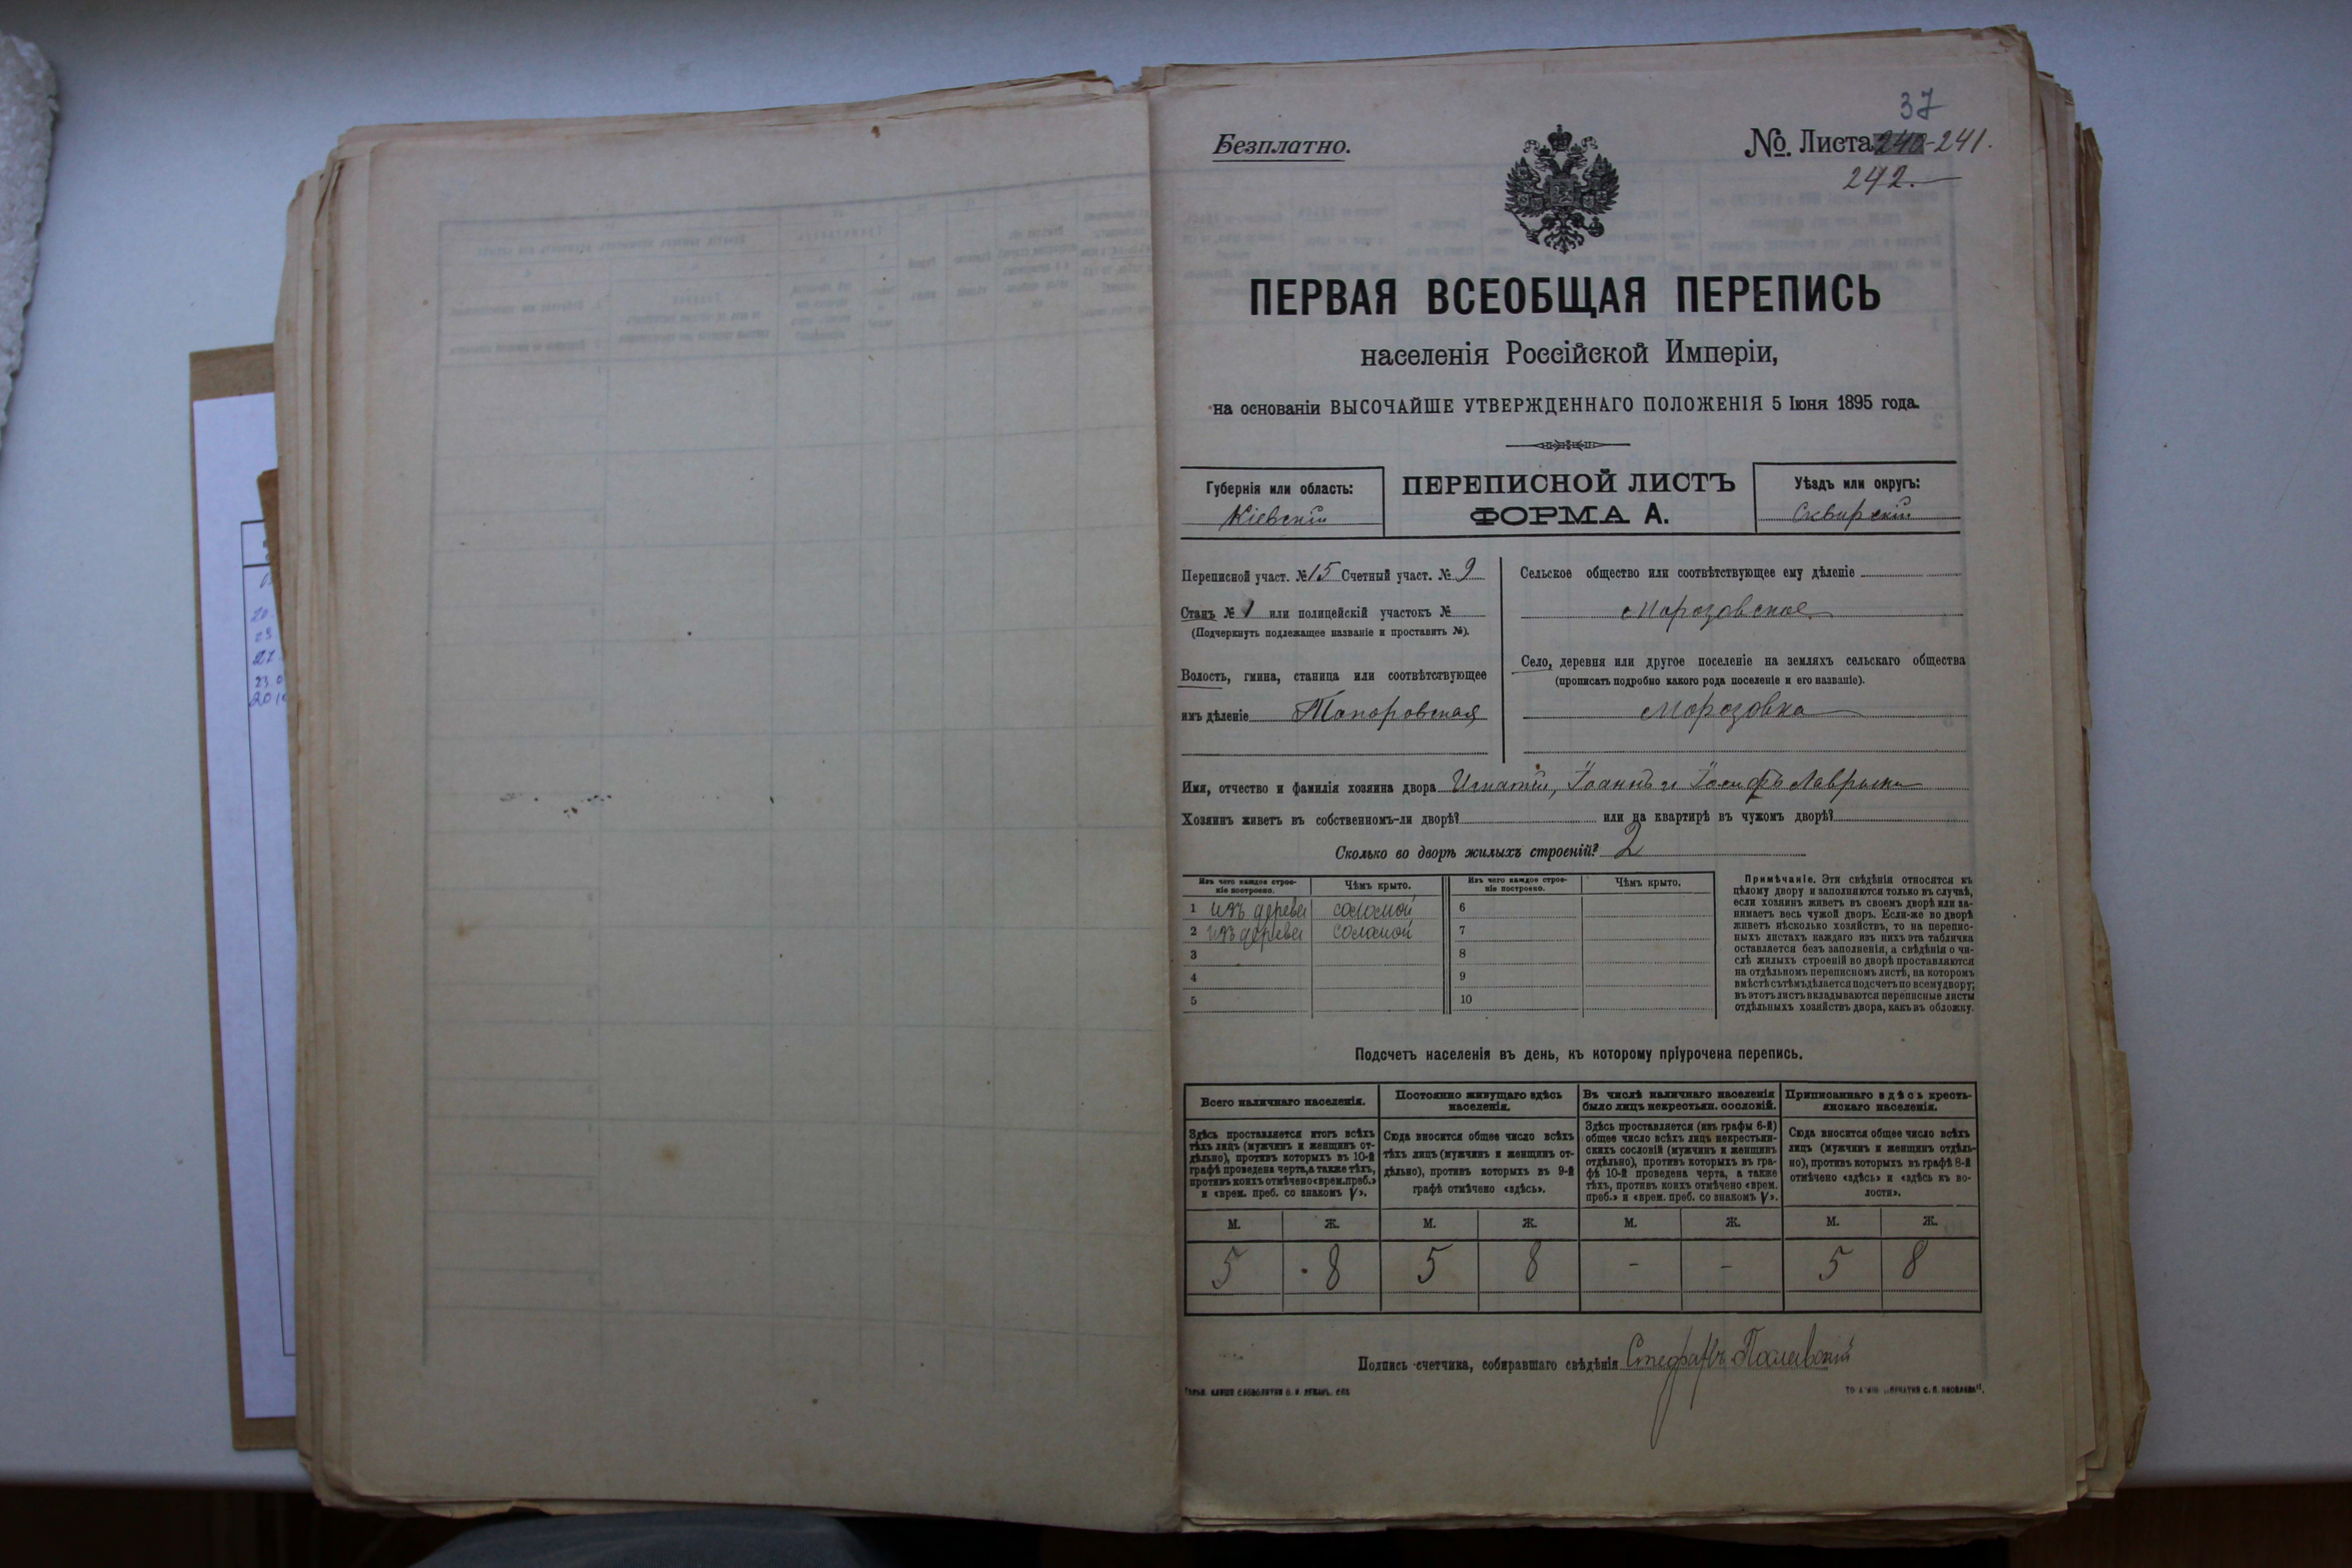 37
Безплатно.
№ Листа 240-241.
242.
ПЕРВАЯ ВСЕОБЩАЯ ПЕРЕПИСЬ
населенія Россійской Имперіи,
на основаніи ВЫСОЧАЙШЕ УТВЕРЖДЕННАГО ПОЛОЖЕНІЯ 5 Іюня 1895 года.
Губернія или область:
Кіевскій
ПЕРЕПИСНОЙ ЛИСТЪ
ФОРМА А.
Уѣздъ или округъ:
Сквирскій
Переписной участ. № 15 Счетный участ. № 9
Станъ № 1 или полицейскій участокъ №
(Подчеркнуть подлежащее названіе и проставить №).
Волость, гмина, станица или соотвѣтствующее
имъ дѣленіе Топоровская
Сельское общество или соотвѣтствующее ему дѣленіе
Морозовское
Село, деревня или другое поселеніе на земляхъ сельскаго общества
(прописать подробно какого рода поселеніе и его названіе).
Морозовка
Имя, отчество и фамилія хозяина двора Игнатій, Іоаннъ и Іосифъ
Хозяинъ живетъ въ собственномъ-ли дворѣ? или на квартирѣ въ чужомъ дворѣ?
Сколько во дворѣ жилыхъ строеній? 2
Изъ чего каждое строе-
ніе построено.
Чѣмъ крыто.
Изъ чего каждое строе-
ніе построено.
Чѣмъ крыто.
1 изъ дерева соломой 6
2 изъ дерева соломой 7
3 8
4 9
5 10
Примѣчаніе. Эти свѣдѣнія относятся къ
цѣлому двору и заполняются только въ случаѣ,
если хозяинъ живетъ въ своемъ дворѣ или за-
нимаетъ весь чужой дворъ. Если-же во дворѣ
живетъ нѣсколько хозяйствъ, то на перепис-
ныхъ листахъ каждаго изъ нихъ эта табличка
оставляется безъ заполненія, а свѣдѣнія о чи-
слѣ жилыхъ строеній во дворѣ проставляются
на отдѣльномъ переписномъ листѣ, на которомъ
вмѣстѣ съ тѣмъ дѣлается подсчетъ по всему двору;
въ этотъ листъ вкладываются переписные листы
отдѣльныхъ хозяйствъ двора, какъ въ обложку.
Подсчетъ населенія въ день, къ которому пріурочена перепись.
Всего наличнаго населенія.
Постоянно живущаго здѣсь
населенія.
Въ числѣ наличнаго населенія
было лицъ некрестьян. сословій.
Приписаннаго здѣсь кресть-
янскаго населенія.
Здѣсь проставляется итогъ всѣхъ
тѣхъ лицъ (мужчинъ и женщинъ от-
дѣльно), противъ которыхъ въ 10-й
графѣ проведена черта, а также тѣхъ,
противъ коихъ отмѣчено «врем. преб.»
и «врем. преб. со знакомъ V».
Сюда вносится общее число всѣхъ
тѣхъ лицъ (мужчинъ и женщинъ от-
дѣльно), противъ которыхъ въ 9-й
графѣ отмѣчено «здѣсь».
Здѣсь проставляется (изъ графы 6-й)
общее число всѣхъ лицъ некрестьян-
скихъ сословій (мужчинъ и женщинъ
отдѣльно), противъ которыхъ въ гра-
фѣ 10-й проведена черта, а также
тѣхъ, противъ коихъ отмѣчено «врем.
преб.» и «врем. преб. со знакомъ V».
Сюда вносится общее число всѣхъ
лицъ (мужчинъ и женщинъ отдѣль-
но), противъ которыхъ въ графѣ 8-й
отмѣчено «здѣсь» и «здѣсь къ во-
лости».
М. Ж. М. Ж. М. Ж. М. Ж.
5 8 5 8 - - 5 8
Подпись счетчика, собиравшаго свѣдѣнія Стефанъ